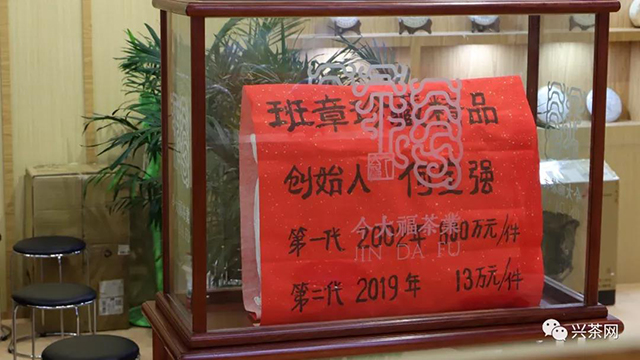 班章 品
创始人 何 强
今大福茶業
第一代 2002年 万元/件
JIN DA FU
第二代 2019年 13万元/件
兴茶网